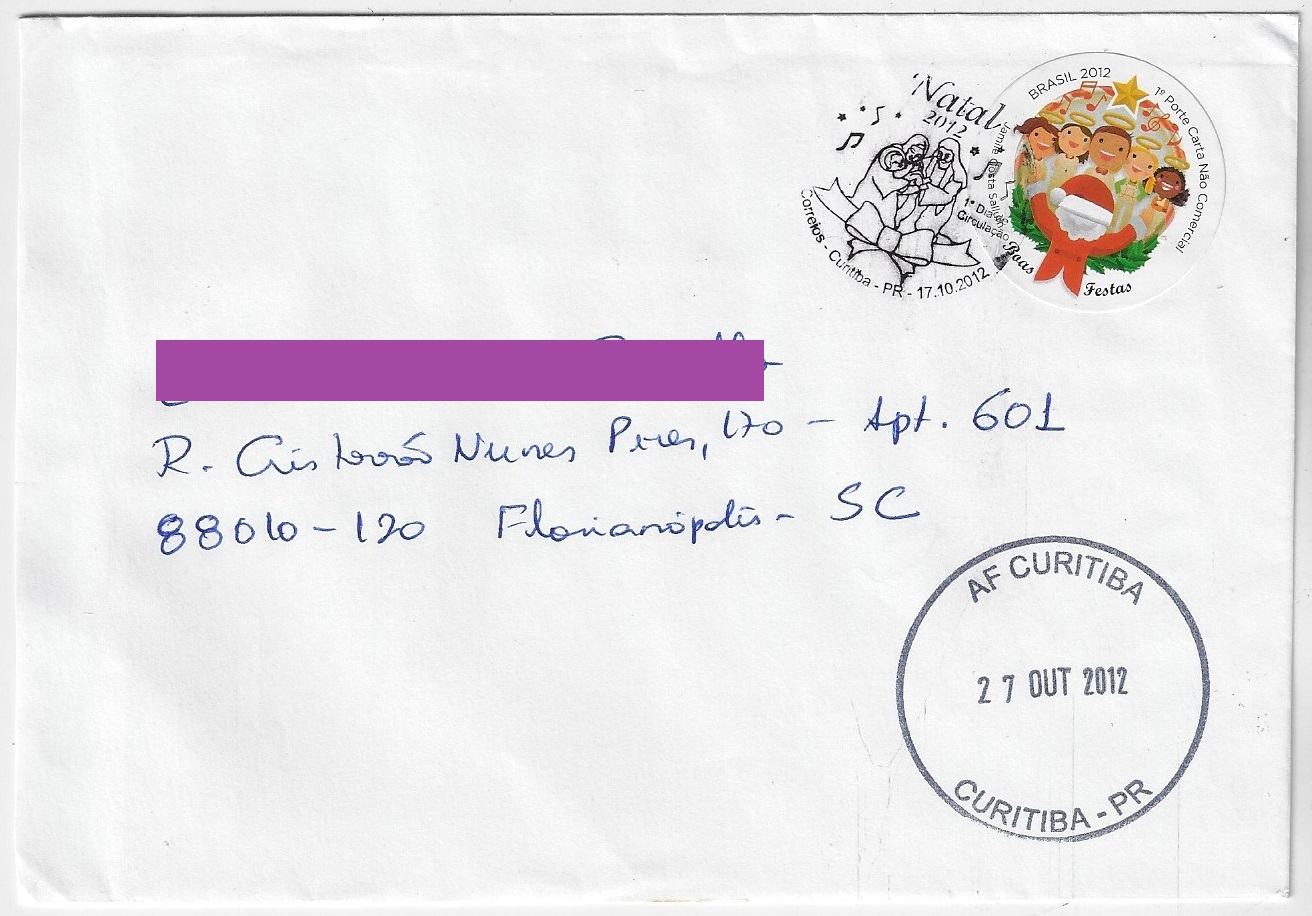 Natal
2012
1º Dia de
Circulação
Correios - Curitiba - PR - 17.10.2012
BRASIL 2012
1º Porte Carta Não Comercial
Boas
Festas
R. Cristovão Nunes Pires, 170 - Apt. 601
88010-120 Florianópolis - SC
AF CURITIBA
27 OUT 2012
CURITIBA - PR